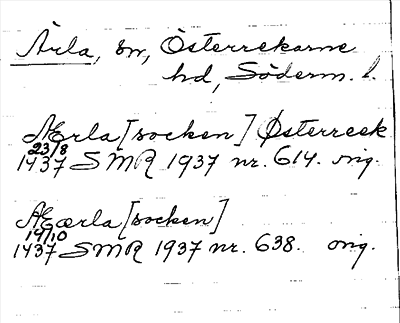 Ärla, sn, Österrekarne
hd, Söderm. l.
Ærla [socken] Østerreek
23/8
1437 SMR 1937 nr. 614. orig.
Æærla [socken]
14/10
1437 SMR 1937 nr. 638. orig.